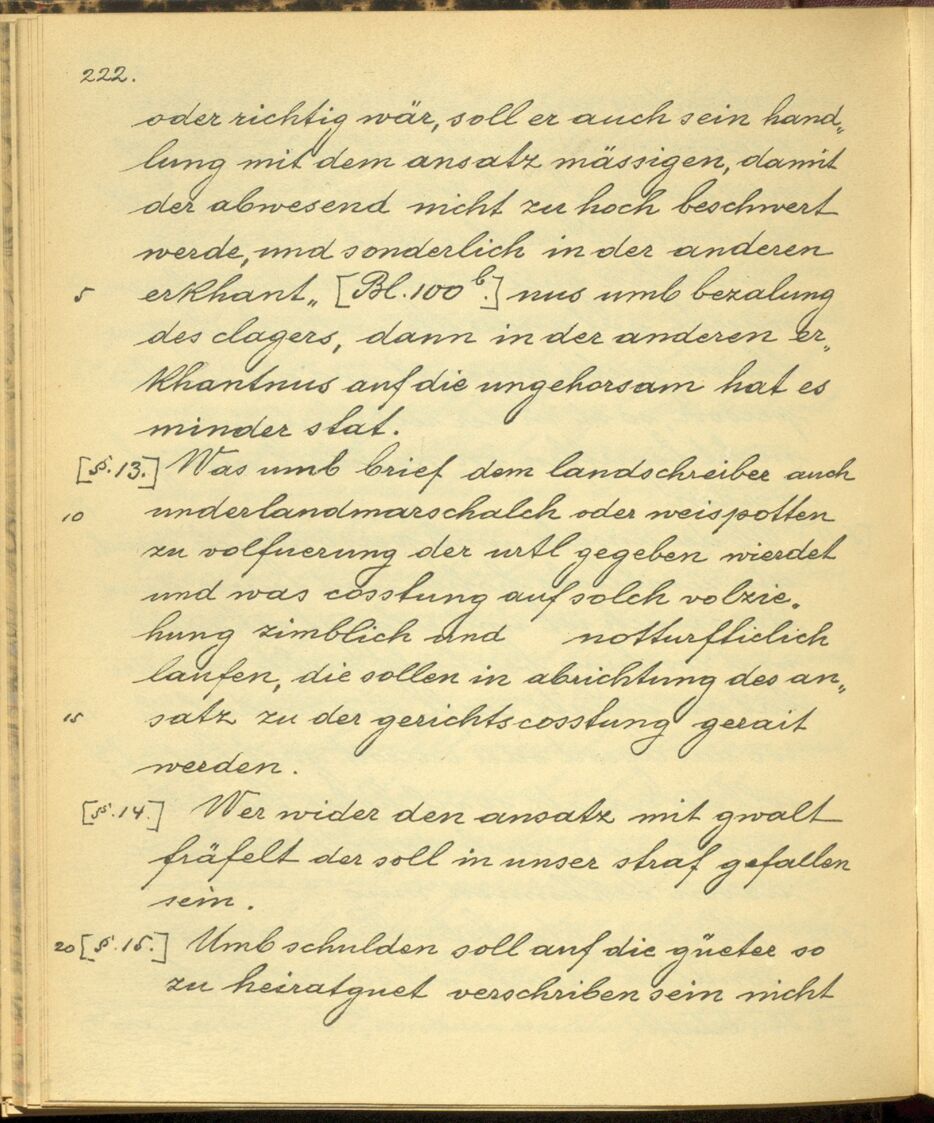 222.
oder richtig wär, soll er auch sein hand„
lung mit dem ansatz mässigen, damit
der abwesend nicht zu hoch beschwert
werde, und sonderlich in der anderen
5 erkhant„ [Bl. 100 b.] nus umb bezalung
des clagers, dann in der anderen er„
khantnus auf die ungehorsam hat es
minder stat.
[§. 13.] Was umb brief dem landschreiber auch
10 underlandmarschalch oder weispotten
zu volfuerung der urtl gegeben wierdet
und was cosstung auf solch volzie„
hung zimblich und notturfticlich
laufen, die sollen in abrichtung des an„
15 satz zu der gerichtscosstung gerait
werden.
[§. 14.] Wer wider den ansatz mit gwalt
fräfelt der soll in unser straf gefallen
sein.
20 [§. 15.] Umb schulden soll auf die güeter so
zu heiratguet verschriben sein nicht